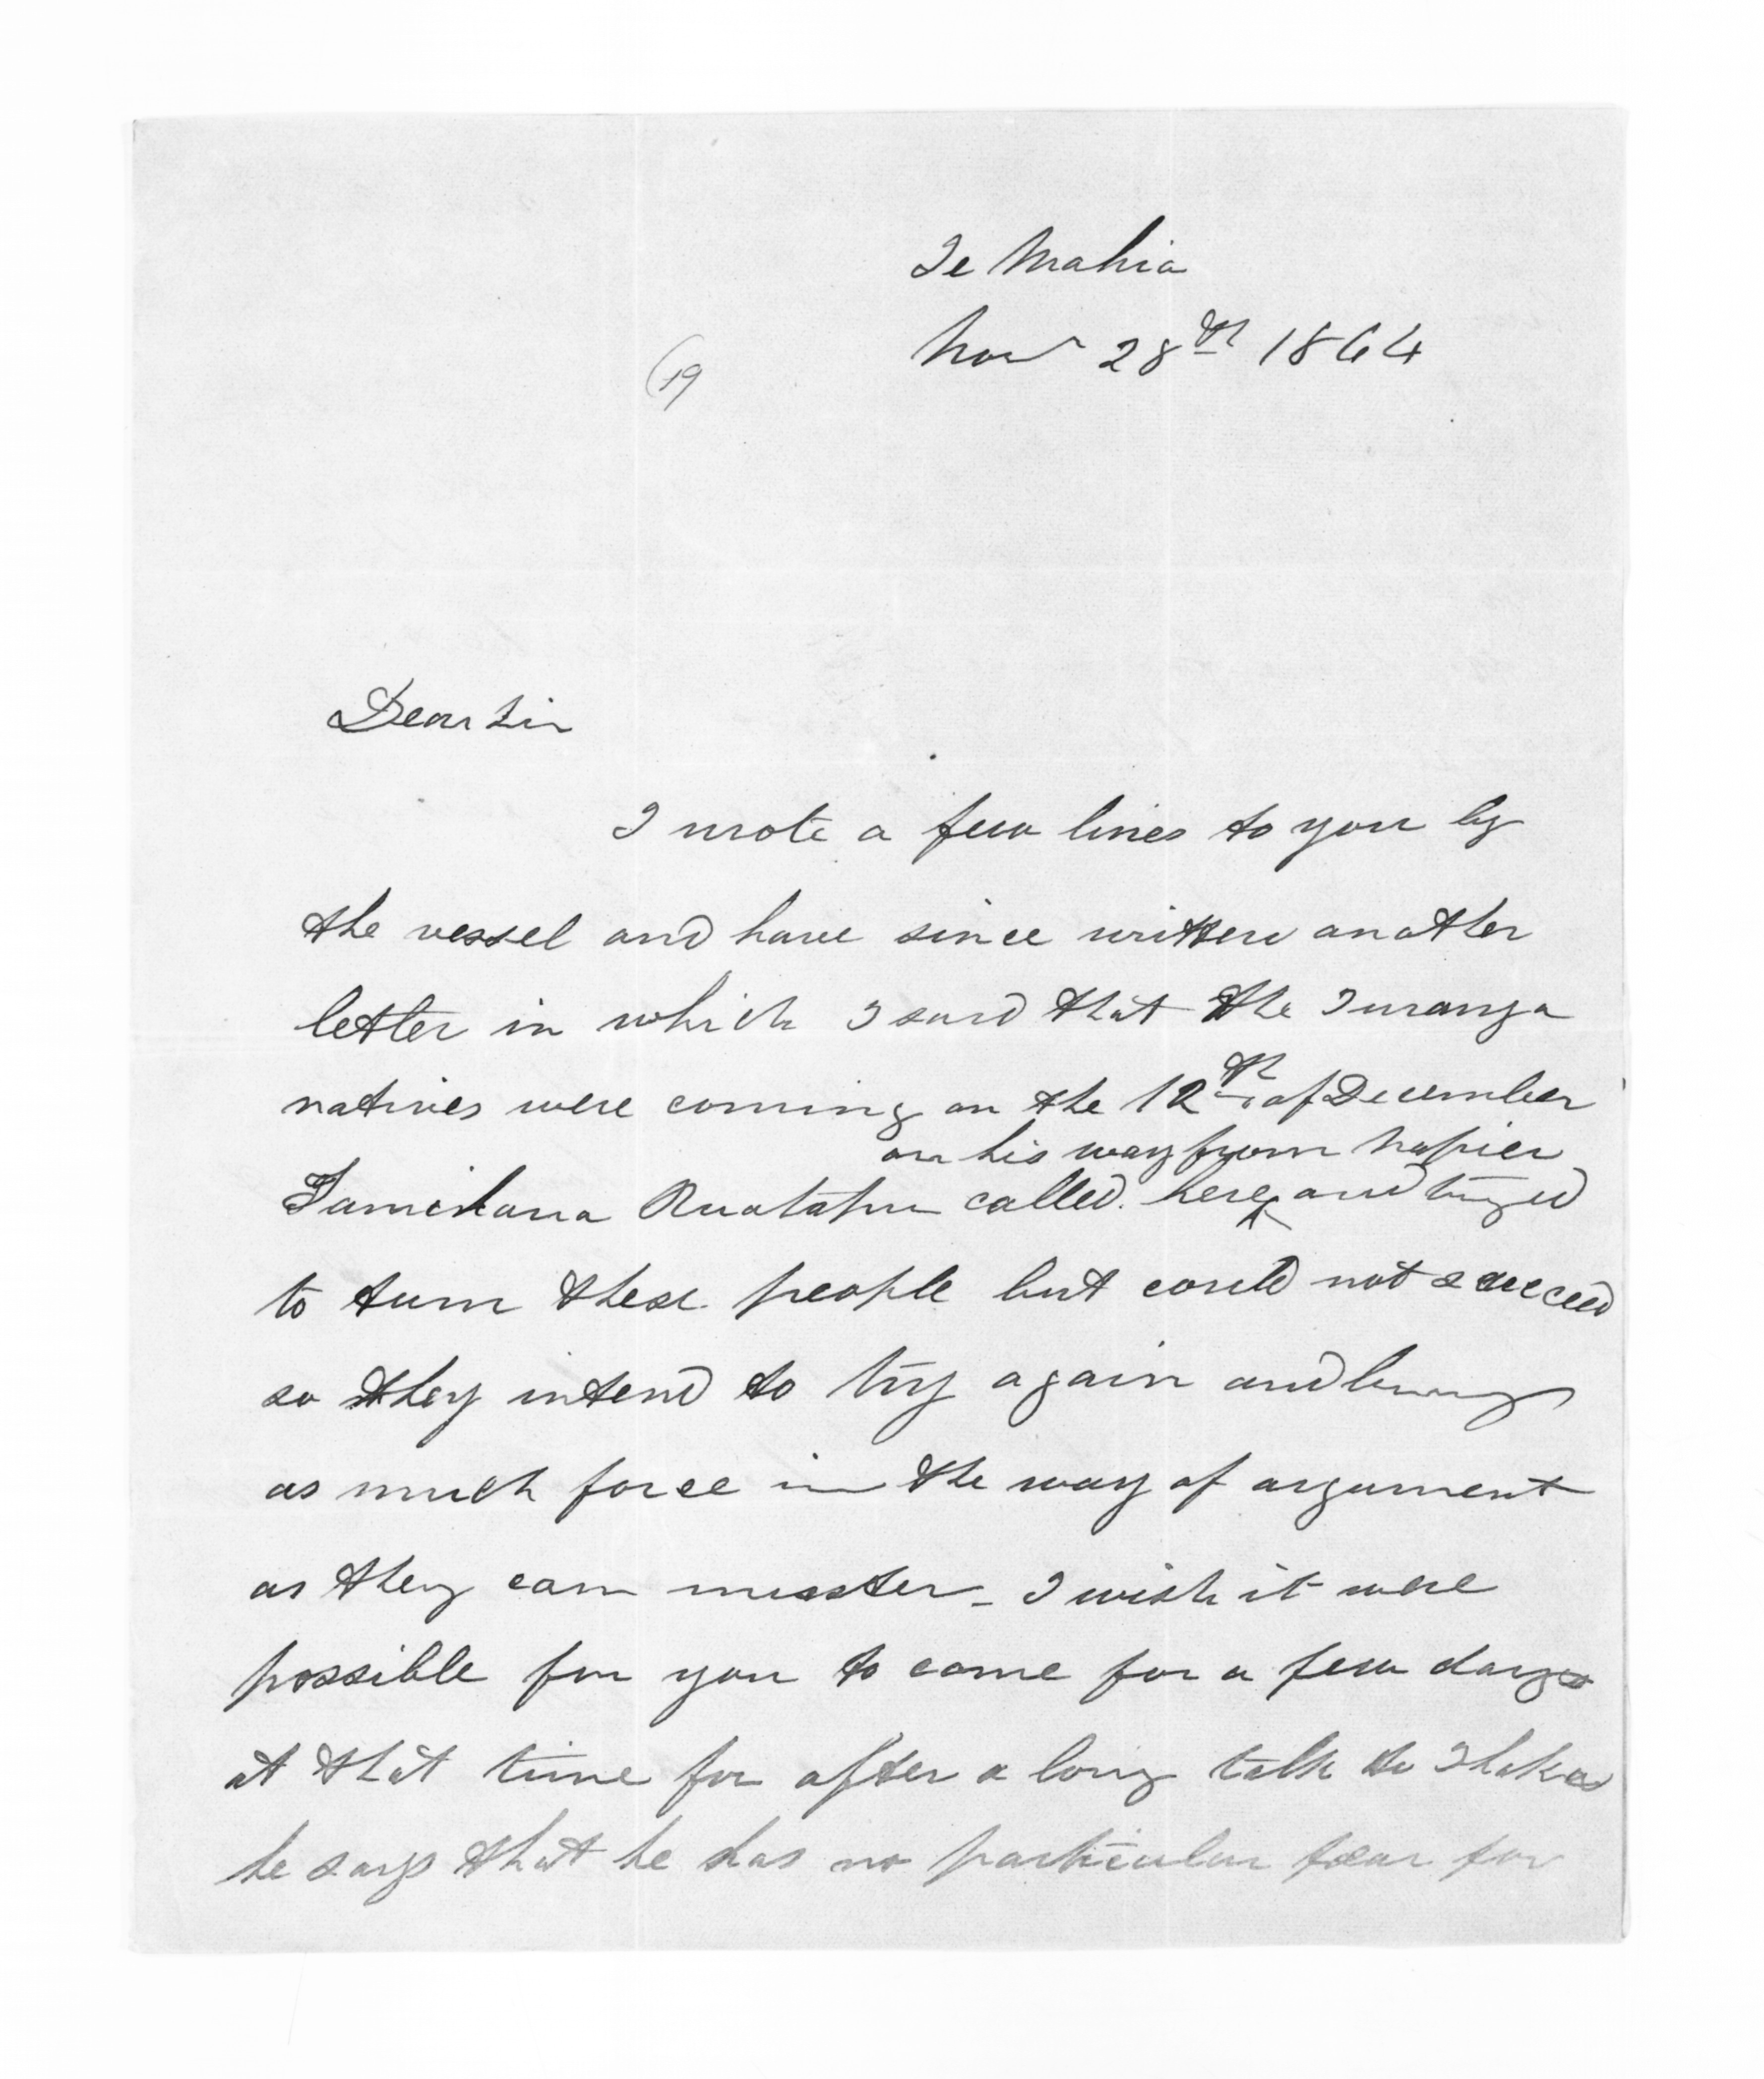 Te Mahia
Nov 28th 1864
(19
Dear Sir
I wrote a few lines to you by
the vessel and have since written another
letter in which I said that the Turanga
natives were coming on the 12th of December
on his way from Napier
Tamihana Ruatapu called here and tryed
to turn these people but could not succeed
so they intend to try again and bring
as much force in the way of argument
as they can muster _ I wish it were
possible for you to come for a few days
at that time for after a long talk to
he says that he has no particular fear for